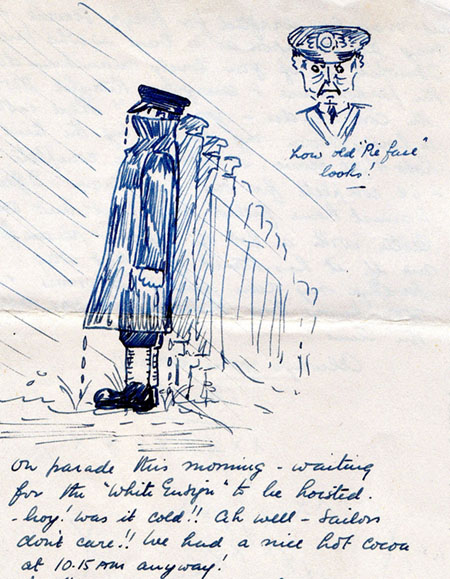 how old "Pie face"
looks!
on parade this morning - waiting
for the "White Ensign" to be hoisted.
- boy! was it cold!! Ah well - Sailors
don't care!! We had a nice hot cocoa
at 10.15 AM anyway!